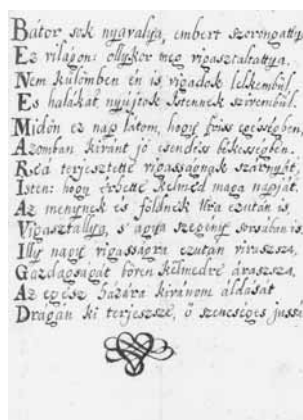 Bátor sok nyavalya, embert szorongattya
Ez világon: ollykor meg vigasztaltattya.
Nem külömben én is vigadok lelkembül,
Es halákat nyújtok Istennek szivembül.
Midőn ez nap látom, hogy friss egésségben,
Azomban kivánt jó csendess békességben.
Reá terjesztette vigasságnak szárnyát,
Isten: hogy érhette Kelmed maga napját,
Az menynek és földnek Ura ezután is,
Vigasztallya, s' ugya szegény sorsában is.
Illy nagy vigasságra ezután viraszsza,
Gazdagságát bőven kelmedre áraszsza,
Az egész házára kivánom áldását
Dragán ki terjeszsze, ő szencséges jussa